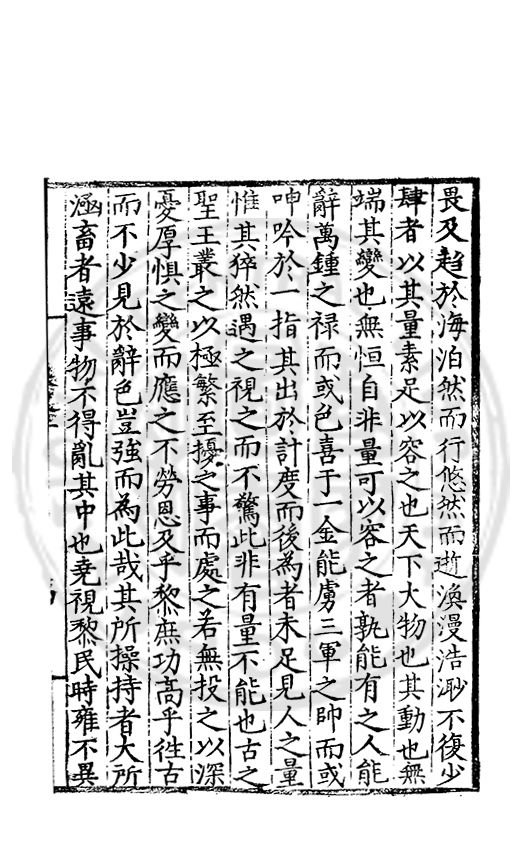 畏及趍於海泊然而行悠然而逝渙漫浩渺不復少
肆者以其量素足以容之也天下大物也其動也無
端其變也無恒自非量可以容之者孰能有之人能
辭萬鍾之祿而或色喜于一金能虜三軍之帥而或
呻吟於一指其出於計度而後為者未足見人之量
惟其猝然遇之視之而不驚此非有量不能也古之
聖王叢之以極繁至擾之事而處之若無投之以深
憂厚懼之變而應之不勞恩及乎黎庶功高乎徃古
而不少見於辭色豈強而為此哉其所操持者大所
涵畜者遠事物不得亂其中也堯視黎民時雍不異